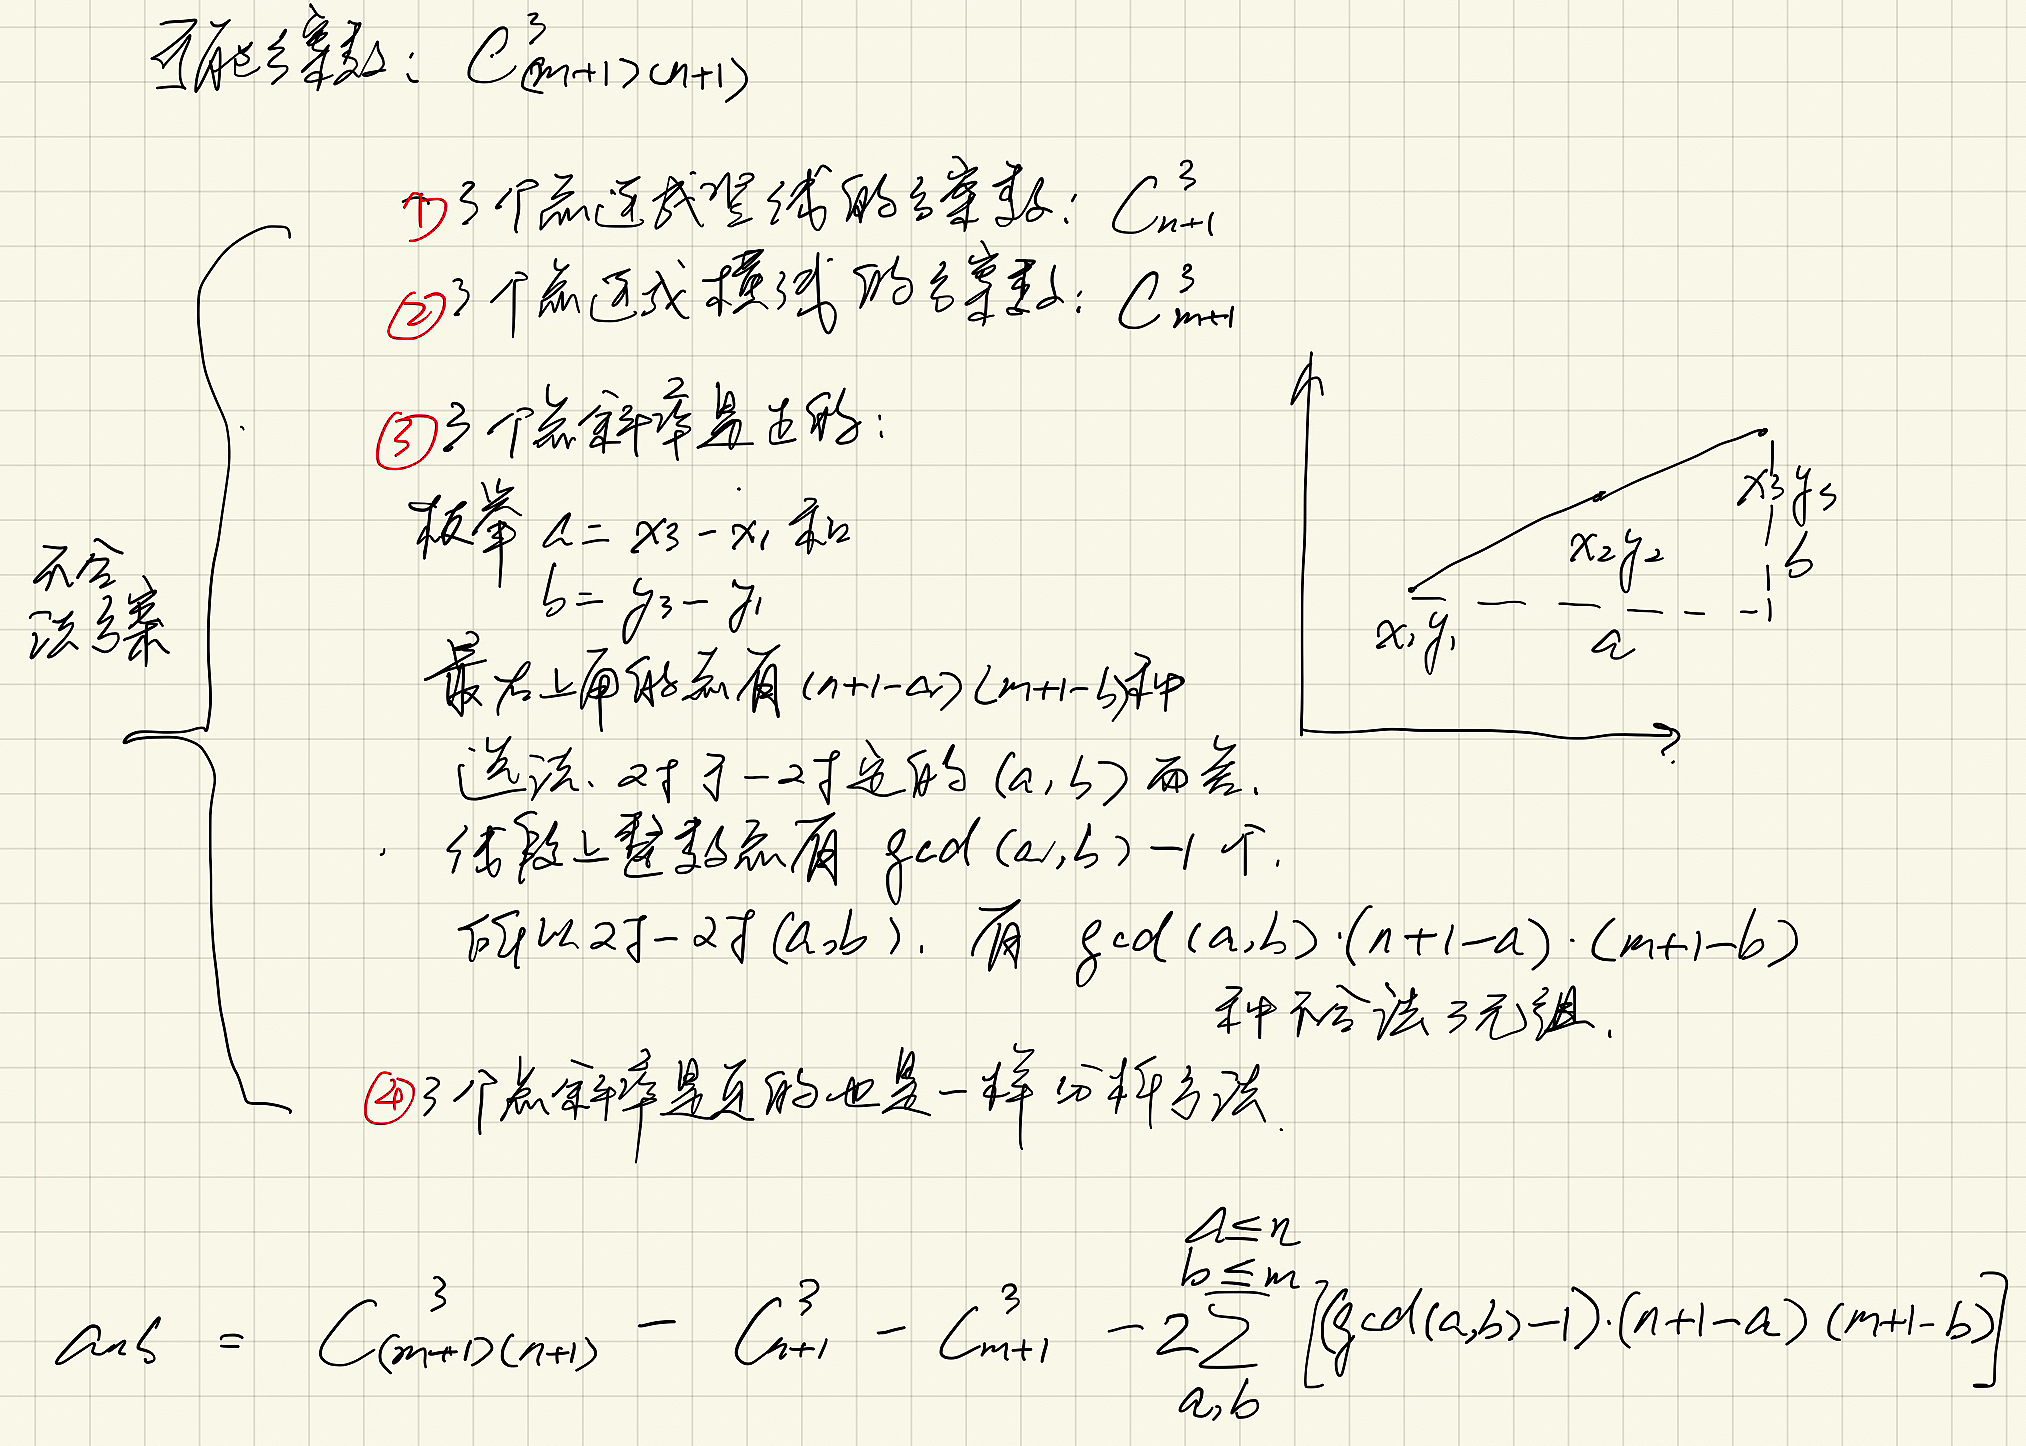 可能方案数: C³(m+1)(n+1)
①3个点连成竖线的方案数: C³n+1
②3个点连成横线的方案数: C³m+1
③3个点斜率是正的:
枚举 a = x3 - x1 和
b = y3 - y1
最右上角的点有(n+1-a)(m+1-b)种
选法. 对于一对定的(a,b)而言.
线段上整数点有 gcd(a,b)-1个.
所以对一对(a,b). 有 gcd(a,b)·(n+1-a)·(m+1-b)
种不合法3元组.
④3个点斜率是负的也是一样分析方法.
不合
法方案
x3 y3
x2 y2
b
x1 y1
a
ans = C³(m+1)(n+1) - C³n+1 - C³m+1 - 2∑ [(gcd(a,b)-1)·(n+1-a)(m+1-b)]
a≤n
b≤m
a,b